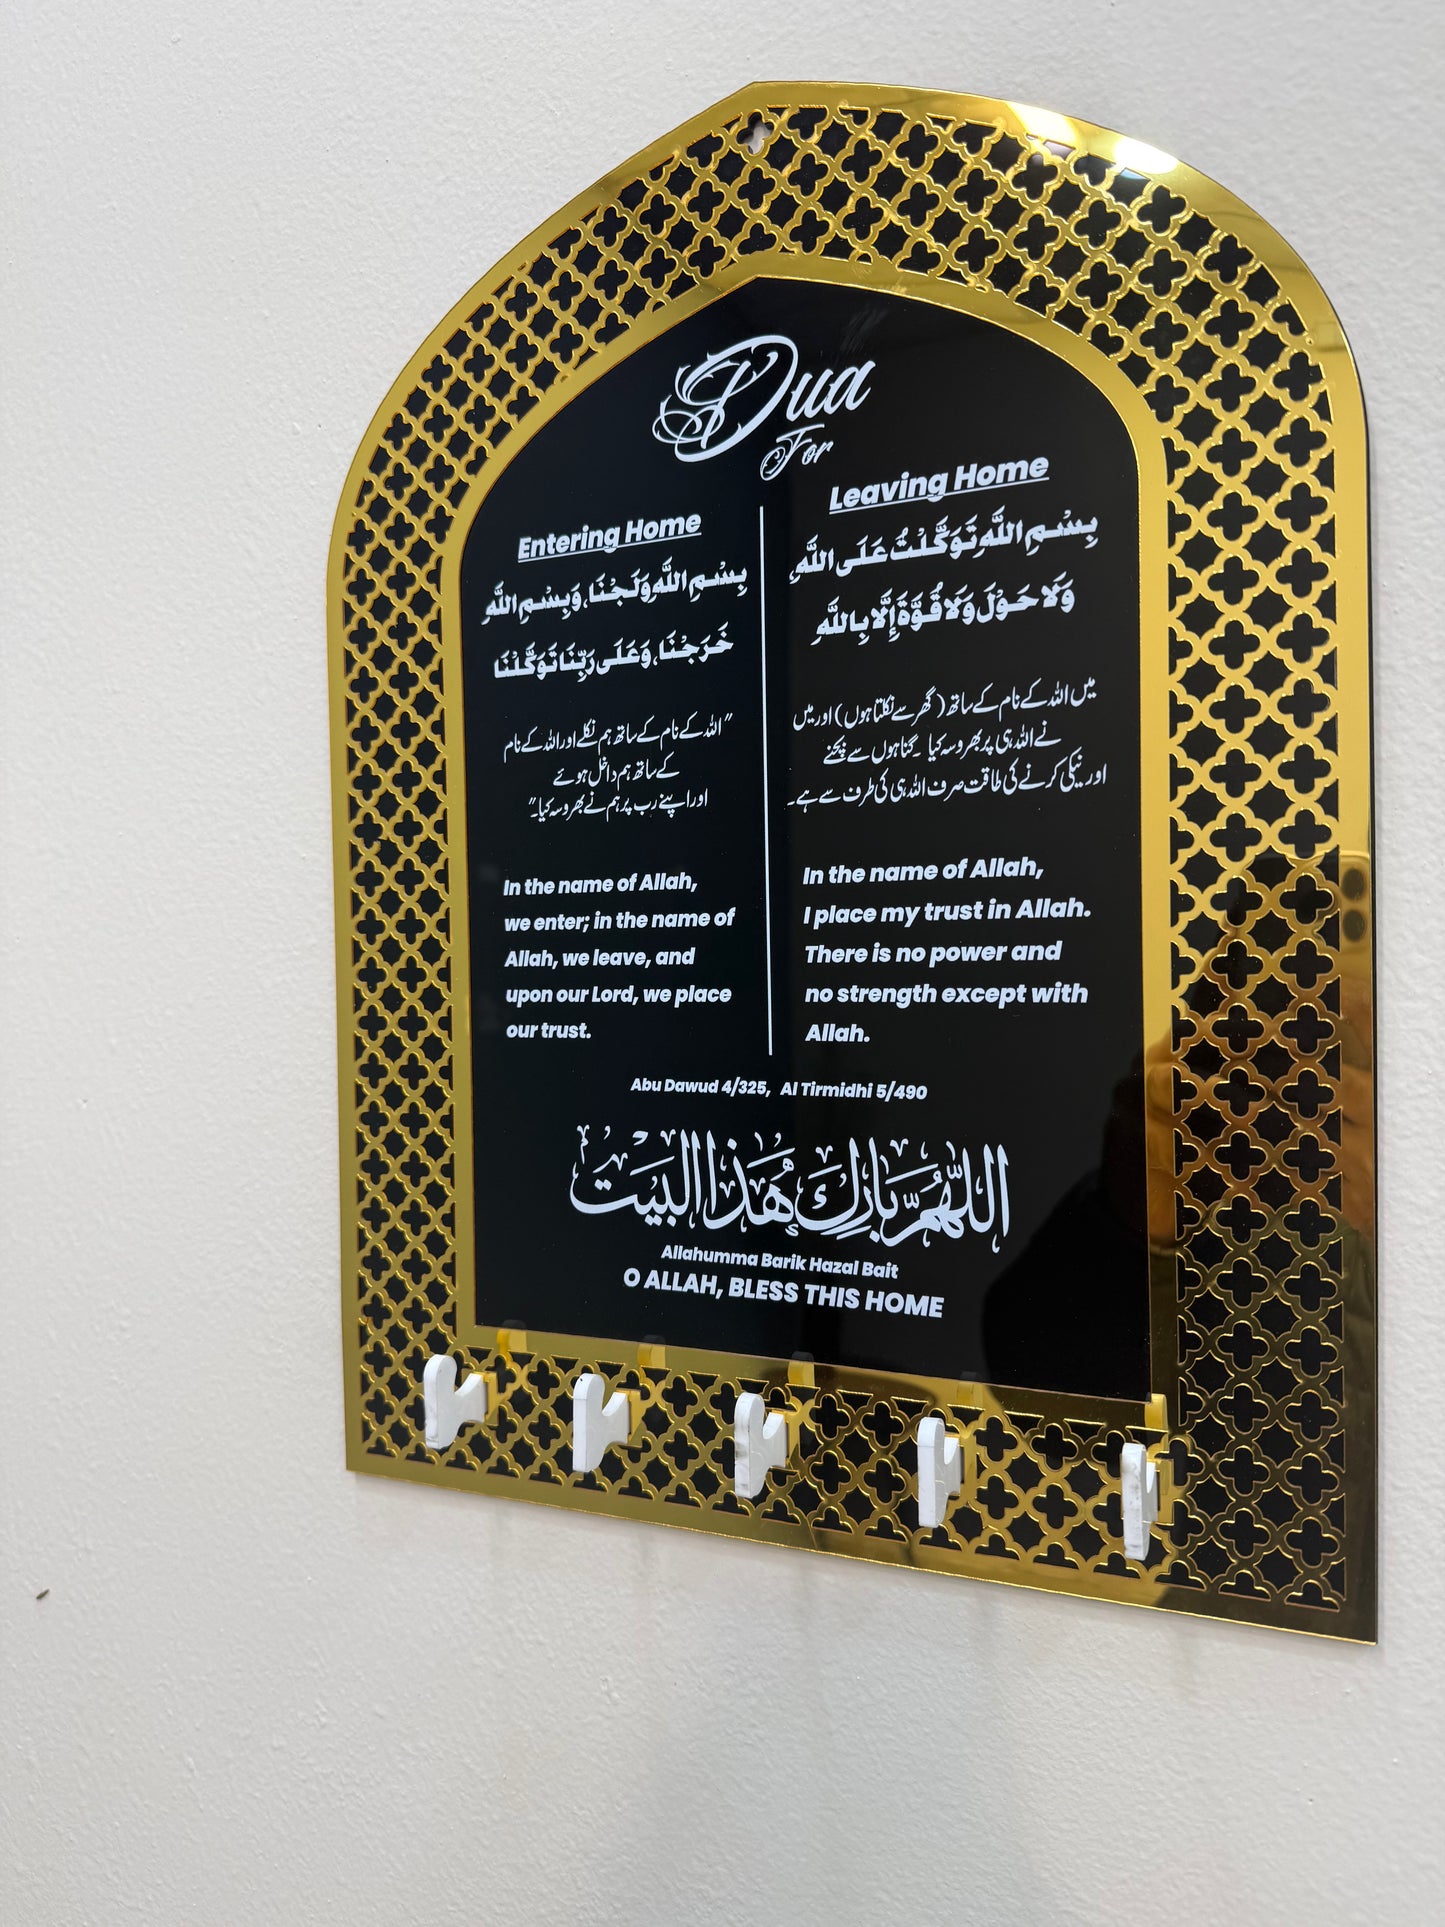 Dua
For
Entering Home
بِسْمِ اللَّهِ وَلَجْنَا، وَبِسْمِ اللَّهِ
خَرَجْنَا، وَعَلَى رَبِّنَا تَوَكَّلْنَا
"اللہ کے نام کے ساتھ ہم نکلے اور اللہ کے نام
کے ساتھ ہم داخل ہوئے
اور اپنے رب پر ہم نے بھروسہ کیا۔"
In the name of Allah,
we enter; in the name of
Allah, we leave, and
upon our Lord, we place
our trust.
Leaving Home
بِسْمِ اللَّهِ تَوَكَّلْتُ عَلَى اللَّهِ،
وَلَا حَوْلَ وَلَا قُوَّةَ إِلَّا بِاللَّهِ
میں اللہ کے نام کے ساتھ (گھر سے نکلتا ہوں) اور میں
نے اللہ ہی پر بھروسہ کیا ۔ گناہوں سے بچنے
اور نیکی کرنے کی طاقت صرف اللہ ہی کی طرف سے ہے۔
In the name of Allah,
I place my trust in Allah.
There is no power and
no strength except with
Allah.
Abu Dawud 4/325, Al Tirmidhi 5/490
اللهُمَّ بَارِكَ هٰذَا البَيْت
Allahumma Barik Hazal Bait
O ALLAH, BLESS THIS HOME